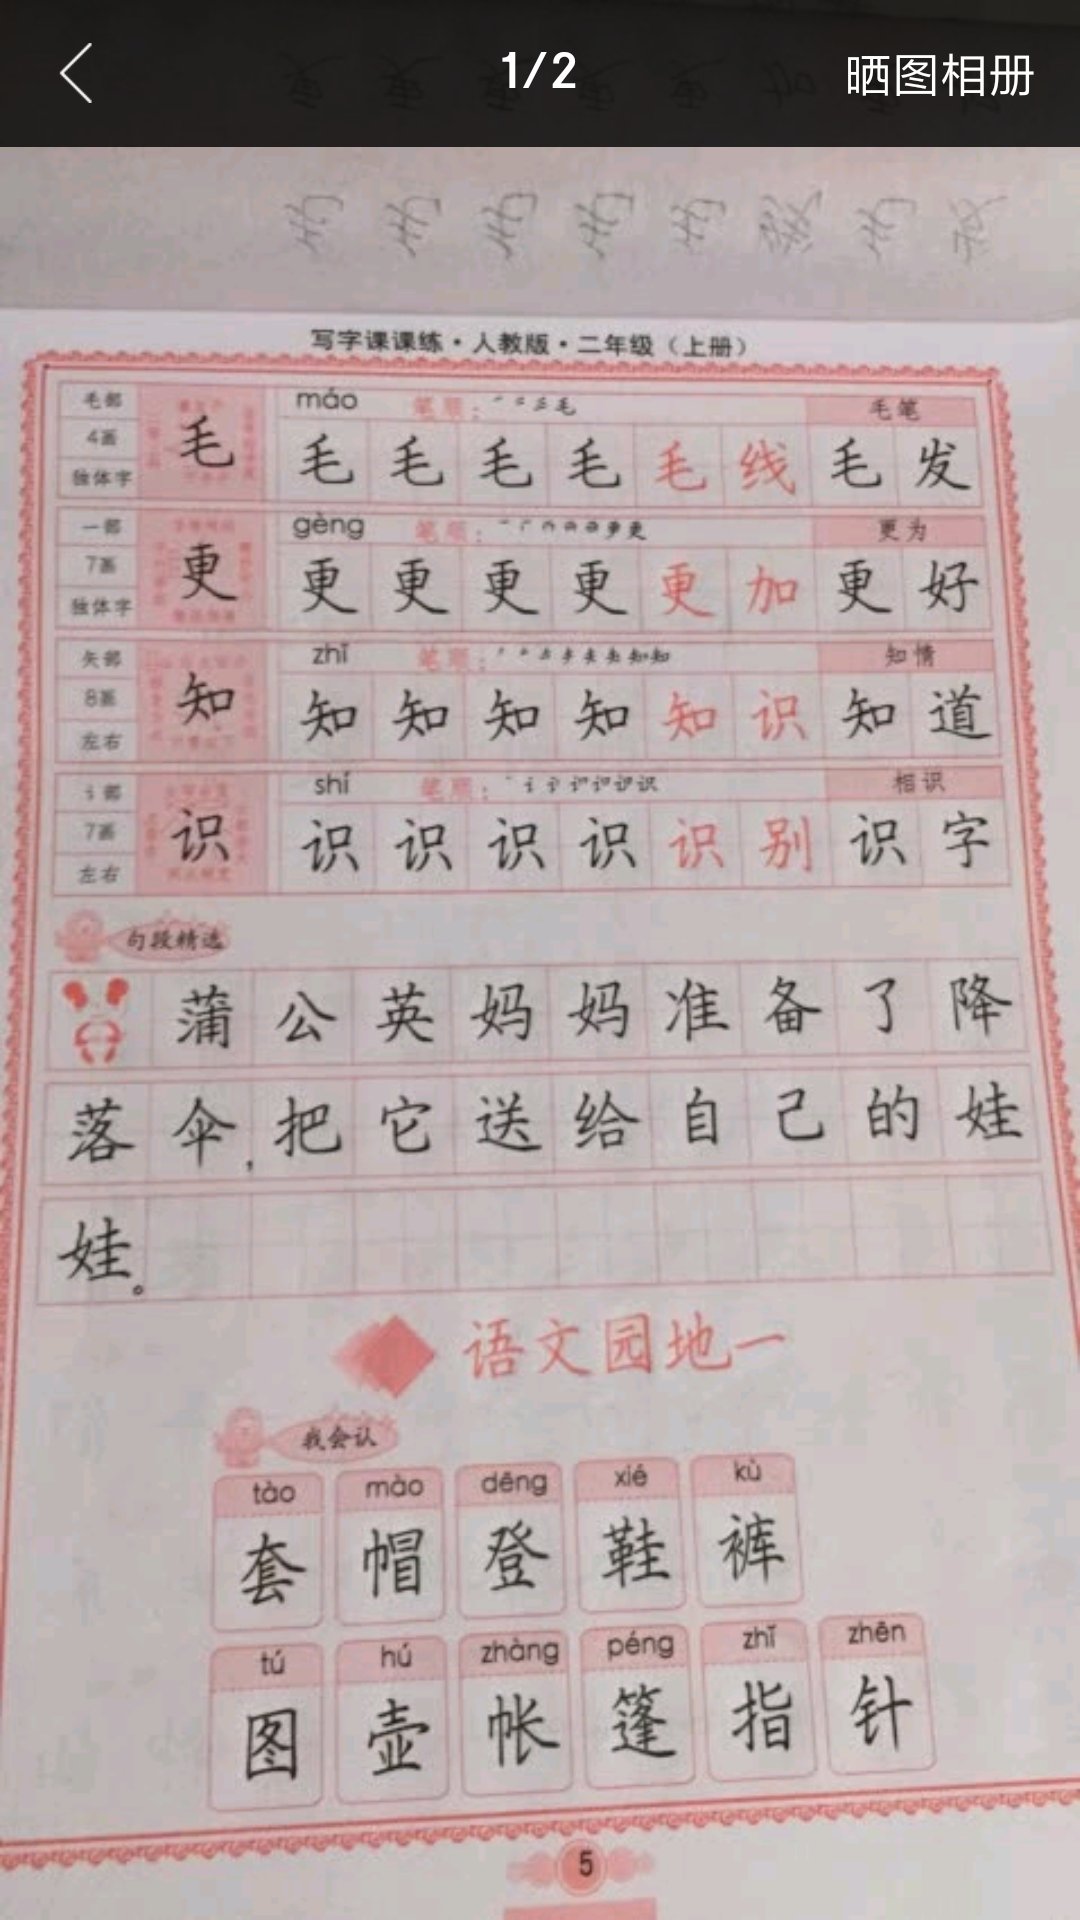 1/2 晒图相册
写字课课练·人教版·二年级（上册）
毛部 máo 笔顺： 毛笔
4画 毛 毛 毛 毛 毛 毛 线 毛 发
独体字
一部 gèng 笔顺： 更为
7画 更 更 更 更 更 更 加 更 好
独体字
矢部 zhī 笔顺： 知情
8画 知 知 知 知 知 知 识 知 道
左右
讠部 shí 笔顺： 相识
7画 识 识 识 识 识 识 别 识 字
左右
句段精选
蒲公英妈妈准备了降
落伞,把它送给自己的娃
娃。
语文园地一
我会认
tào mào dēng xié kù
套 帽 登 鞋 裤
tú hú zhàng péng zhǐ zhēn
图 壶 帐 篷 指 针
5